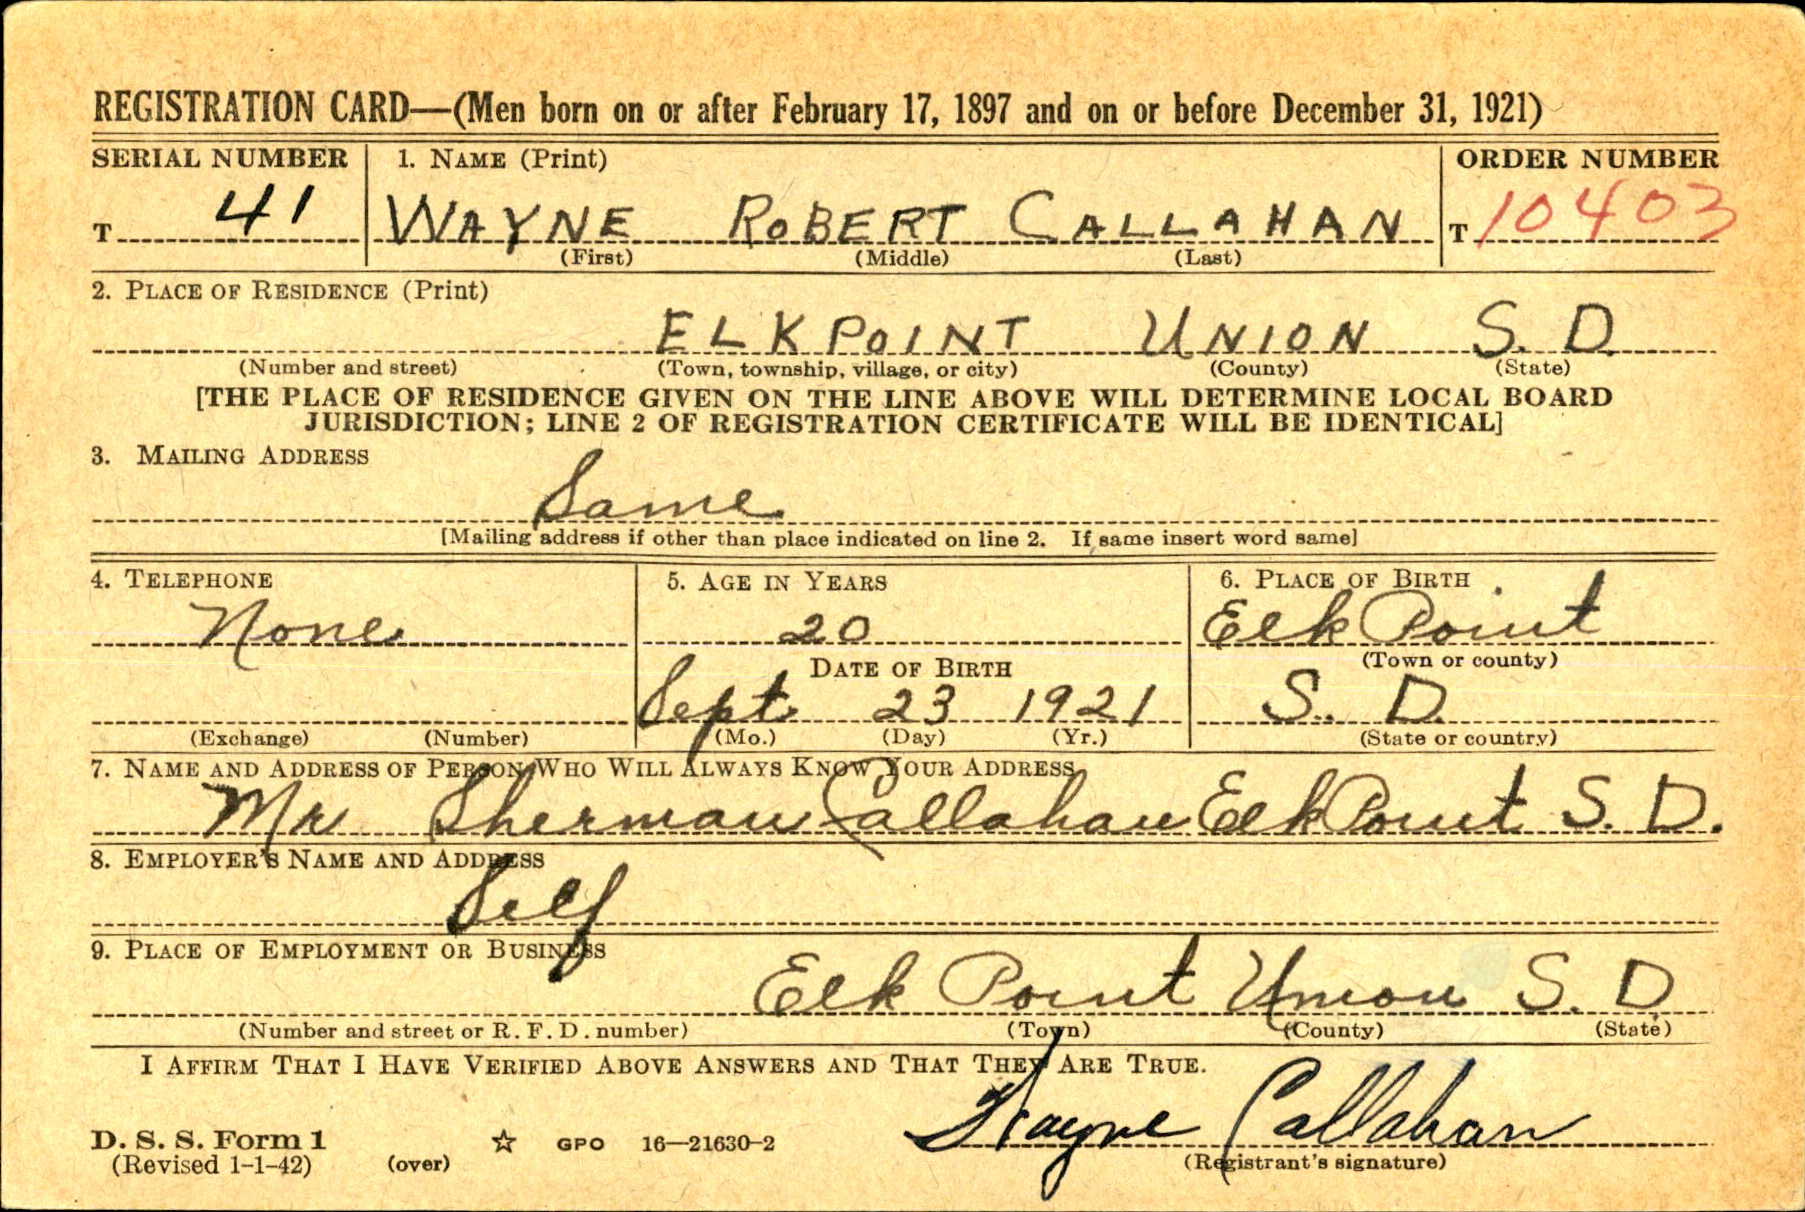 REGISTRATION CARD—(Men born on or after February 17, 1897 and on or before December 31, 1921)
SERIAL NUMBER 1. NAME (Print) ORDER NUMBER
T 41 WAYNE ROBERT CALLAHAN T 10403
(First) (Middle) (Last)
2. PLACE OF RESIDENCE (Print)
ELK POINT UNION S. D.
(Number and street) (Town, township, village, or city) (County) (State)
[THE PLACE OF RESIDENCE GIVEN ON THE LINE ABOVE WILL DETERMINE LOCAL BOARD
JURISDICTION; LINE 2 OF REGISTRATION CERTIFICATE WILL BE IDENTICAL]
3. MAILING ADDRESS
Same
[Mailing address if other than place indicated on line 2. If same insert word same]
4. TELEPHONE 5. AGE IN YEARS 6. PLACE OF BIRTH
None 20 Elk Point
DATE OF BIRTH (Town or county)
Sept 23 1921 S. D.
(Exchange) (Number) (Mo.) (Day) (Yr.) (State or country)
7. NAME AND ADDRESS OF PERSON WHO WILL ALWAYS KNOW YOUR ADDRESS
Mr Sherman Callahan Elk Point S. D.
8. EMPLOYER'S NAME AND ADDRESS
Self
9. PLACE OF EMPLOYMENT OR BUSINESS
Elk Point Union S. D
(Number and street or R. F. D. number) (Town) (County) (State)
I AFFIRM THAT I HAVE VERIFIED ABOVE ANSWERS AND THAT THEY ARE TRUE.
Wayne Callahan
D. S. S. Form 1 ☆ GPO 16—21630-2
(Revised 1-1-42) (over) (Registrant's signature)